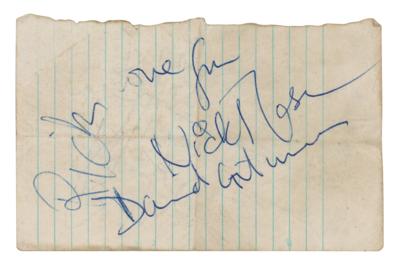 Rick one
Nick Mason
David Gilmour